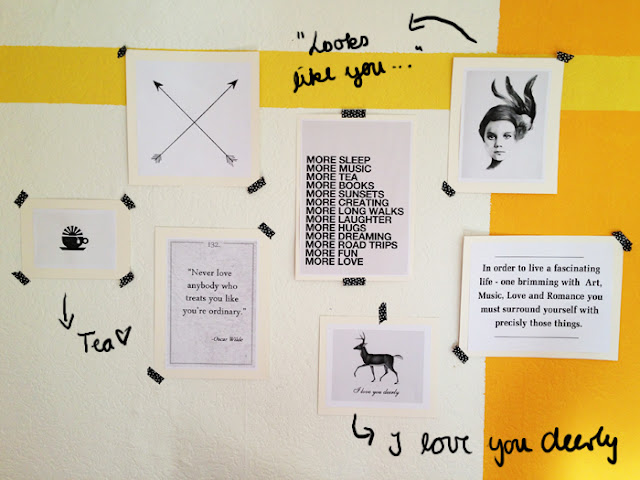 "Looks
like you..."
MORE SLEEP
MORE MUSIC
MORE TEA
MORE BOOKS
MORE SUNSETS
MORE CREATING
MORE LONG WALKS
MORE LAUGHTER
MORE HUGS
MORE DREAMING
MORE ROAD TRIPS
MORE FUN
MORE LOVE
132.
"Never love
anybody who
treats you like
you're ordinary."
-Oscar Wilde
In order to live a fascinating
life - one brimming with Art,
Music, Love and Romance you
must surround yourself with
precisly those things.
Tea
I love you deerly
I love you deerly